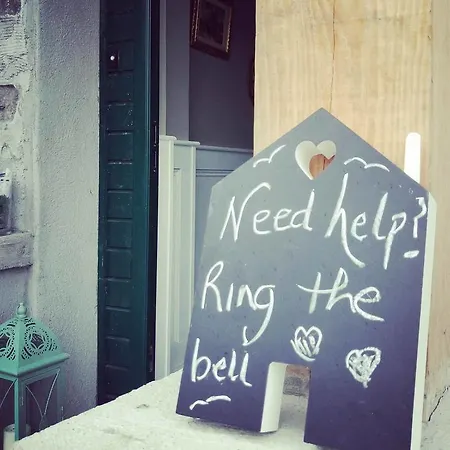 Need help?
Ring the
bell